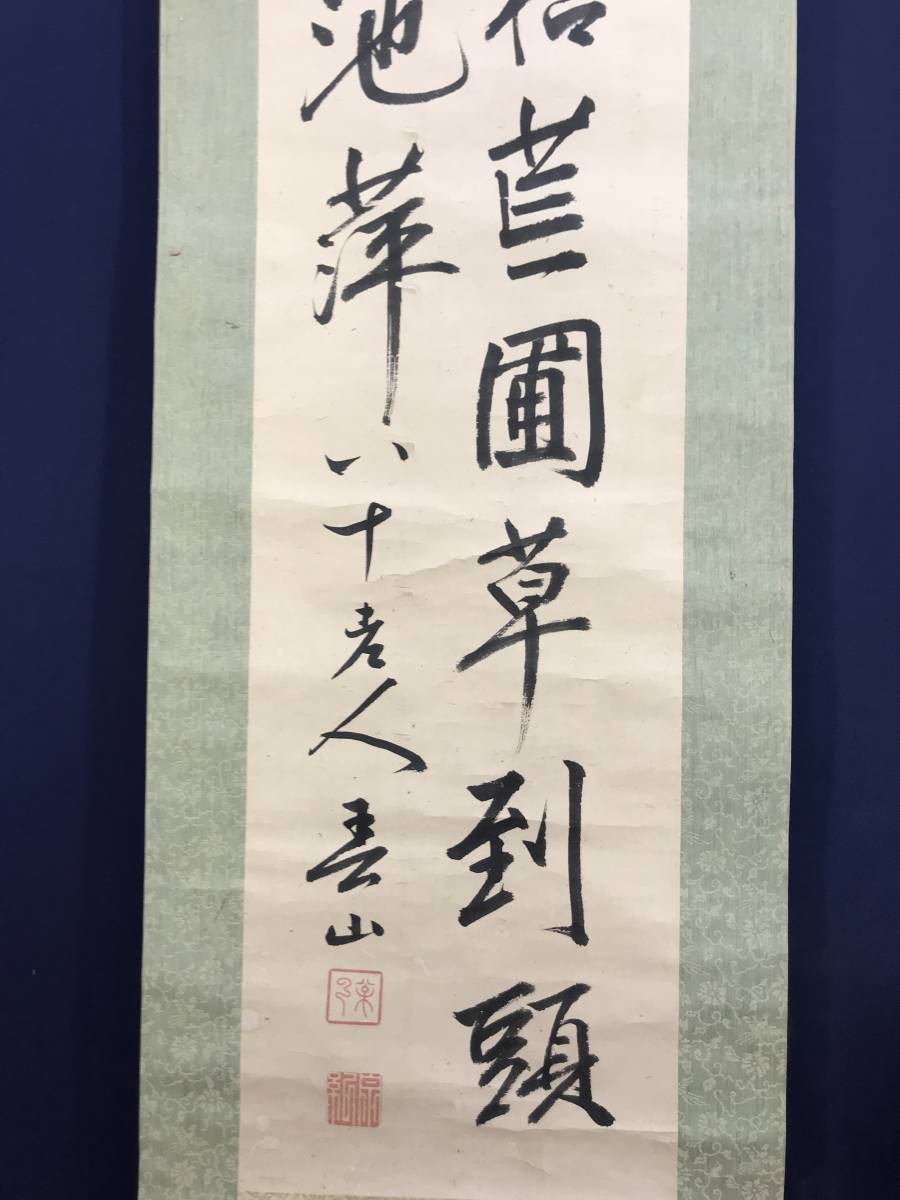 荒圃草到頭
池萍
八十老人
山